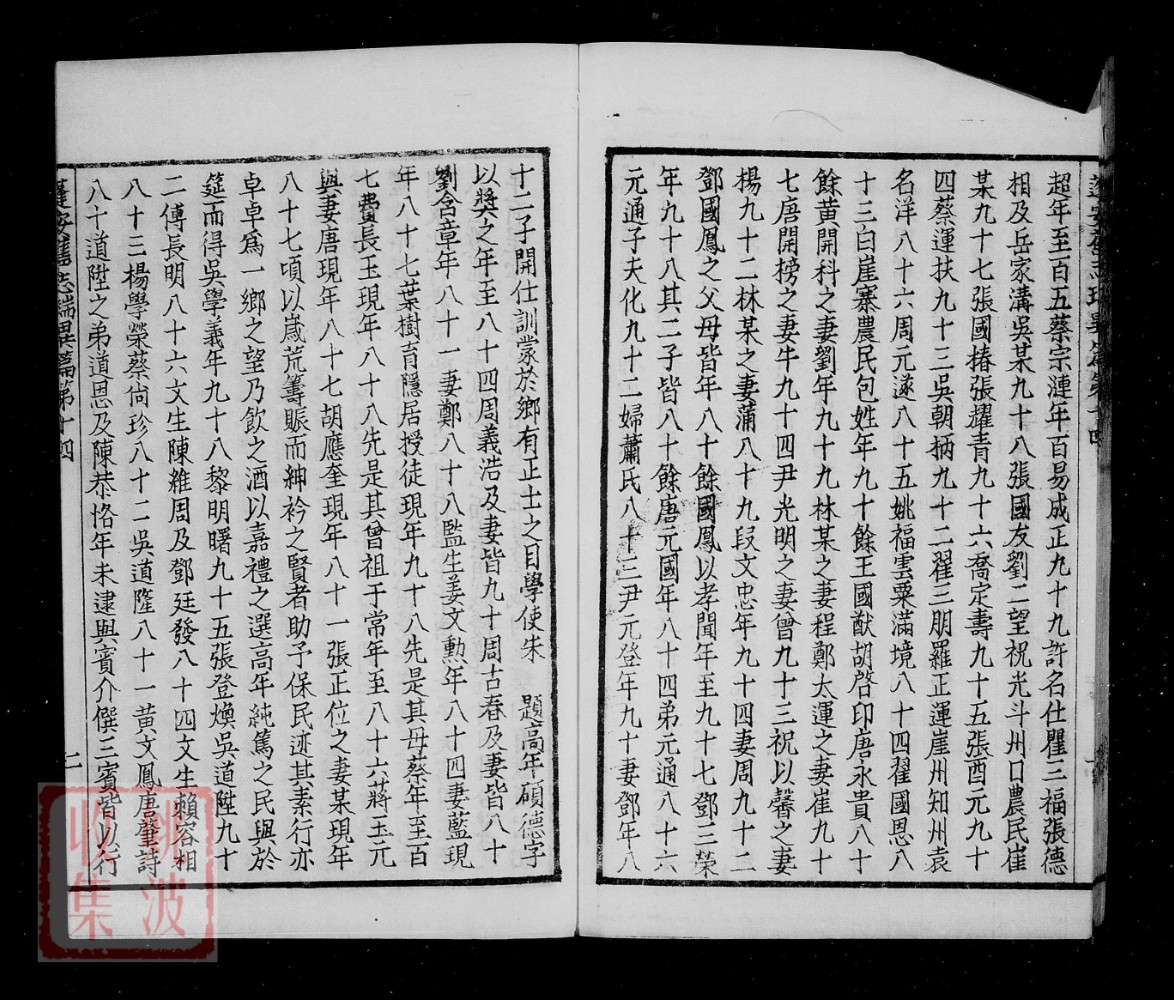 超年至百五蔡宗漣年百易成正九十九許名仕瞿三福張德
相及岳家溝吳某九十八張國友劉二望祝光斗州口農民崔
某九十七張國椿張耀青九十六喬定壽九十五張酉元九十
四蔡運扶九十三吳朝柄九十二翟三朋羅正運崖州知州袁
名洋八十六周元遂八十五姚福雲粟滿境八十四翟國恩八
十三白崖寨農民包姓年九十餘王國猷胡啓印唐永貴八十
餘黃開科之妻劉年九十九林某之妻程鄭太運之妻崔九十
七唐開榜之妻牛九十四尹光明之妻曾九十三祝以馨之妻
楊九十二林某之妻蒲八十九段文忠年九十四妻周九十二
鄧國鳳之父母皆年八十餘國鳳以孝聞年至九十七鄧三榮
年九十八其二子皆八十餘唐元國年八十四弟元通八十六
元通子夫化九十二婦蕭氏八十三尹元登年九十妻鄧年八
十二子開仕訓蒙於鄉有正士之目學使朱 題高年碩德字
以獎之年至八十四周義浩及妻皆九十周古春及妻皆八十
劉含章年八十一妻鄭八十八監生姜文勲年八十四妻藍現
年八十七葉樹育隱居授徒現年九十八先是其母蔡年至百
七費長玉現年八十八先是其曾祖于常年至八十六蔣玉元
與妻唐現年八十七胡應奎現年八十一張正位之妻某現年
八十七頃以歲荒籌賑而紳衿之賢者助予保民迹其素行亦
卓卓爲一鄉之望乃飲之酒以嘉禮之選高年純篤之民與於
筵而得吳學義年九十八黎明曙九十五張登煥吳道陞九十
二傅長明八十六文生陳維周及鄧廷發八十四文生賴容相
八十三楊學榮蔡尙珍八十二吳道隆八十一黃文鳳唐肇詩
八十道陞之弟道恩及陳恭恪年未逮與賓介僎三賓皆以行
蓬安舊志瑞異篇第十四
二
收集